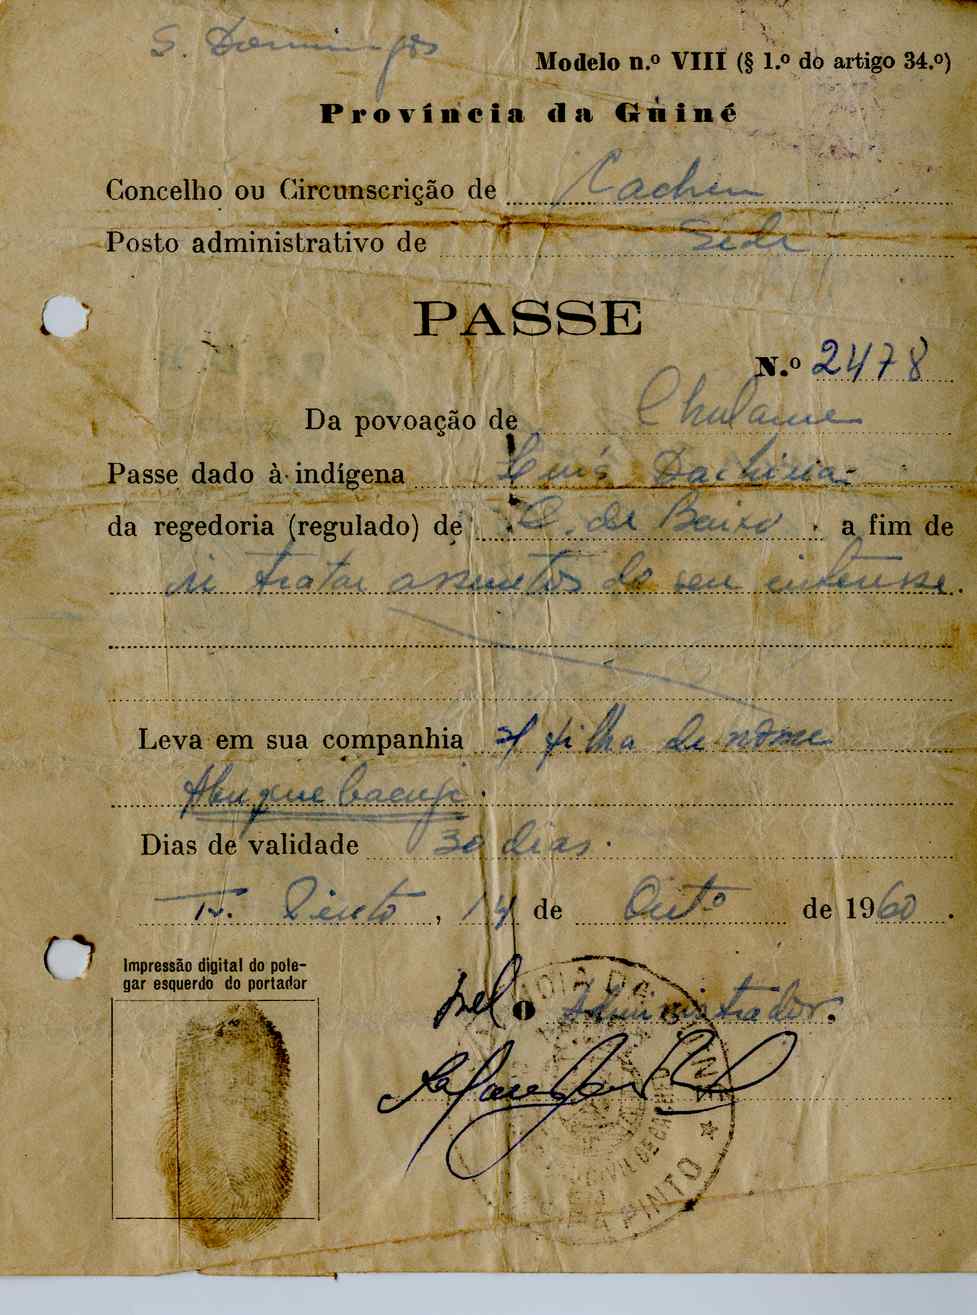 S. Domingos
Modelo n.º VIII (§ 1.º do artigo 34.º)
Província da Guiné
Concelho ou Circunscrição de Cacheu
Posto administrativo de Sede
PASSE
N.º 2478
Da povoação de
Passe dado à indígena
da regedoria (regulado) de C. de Baixo a fim de
ir tratar assuntos do seu interesse.
Leva em sua companhia 1 filha de nome
Dias de validade 30 dias.
T. Pinto, 14 de Outº de 1960.
Impressão digital do pole-
gar esquerdo do portador
pel O Administrador.
PINTO